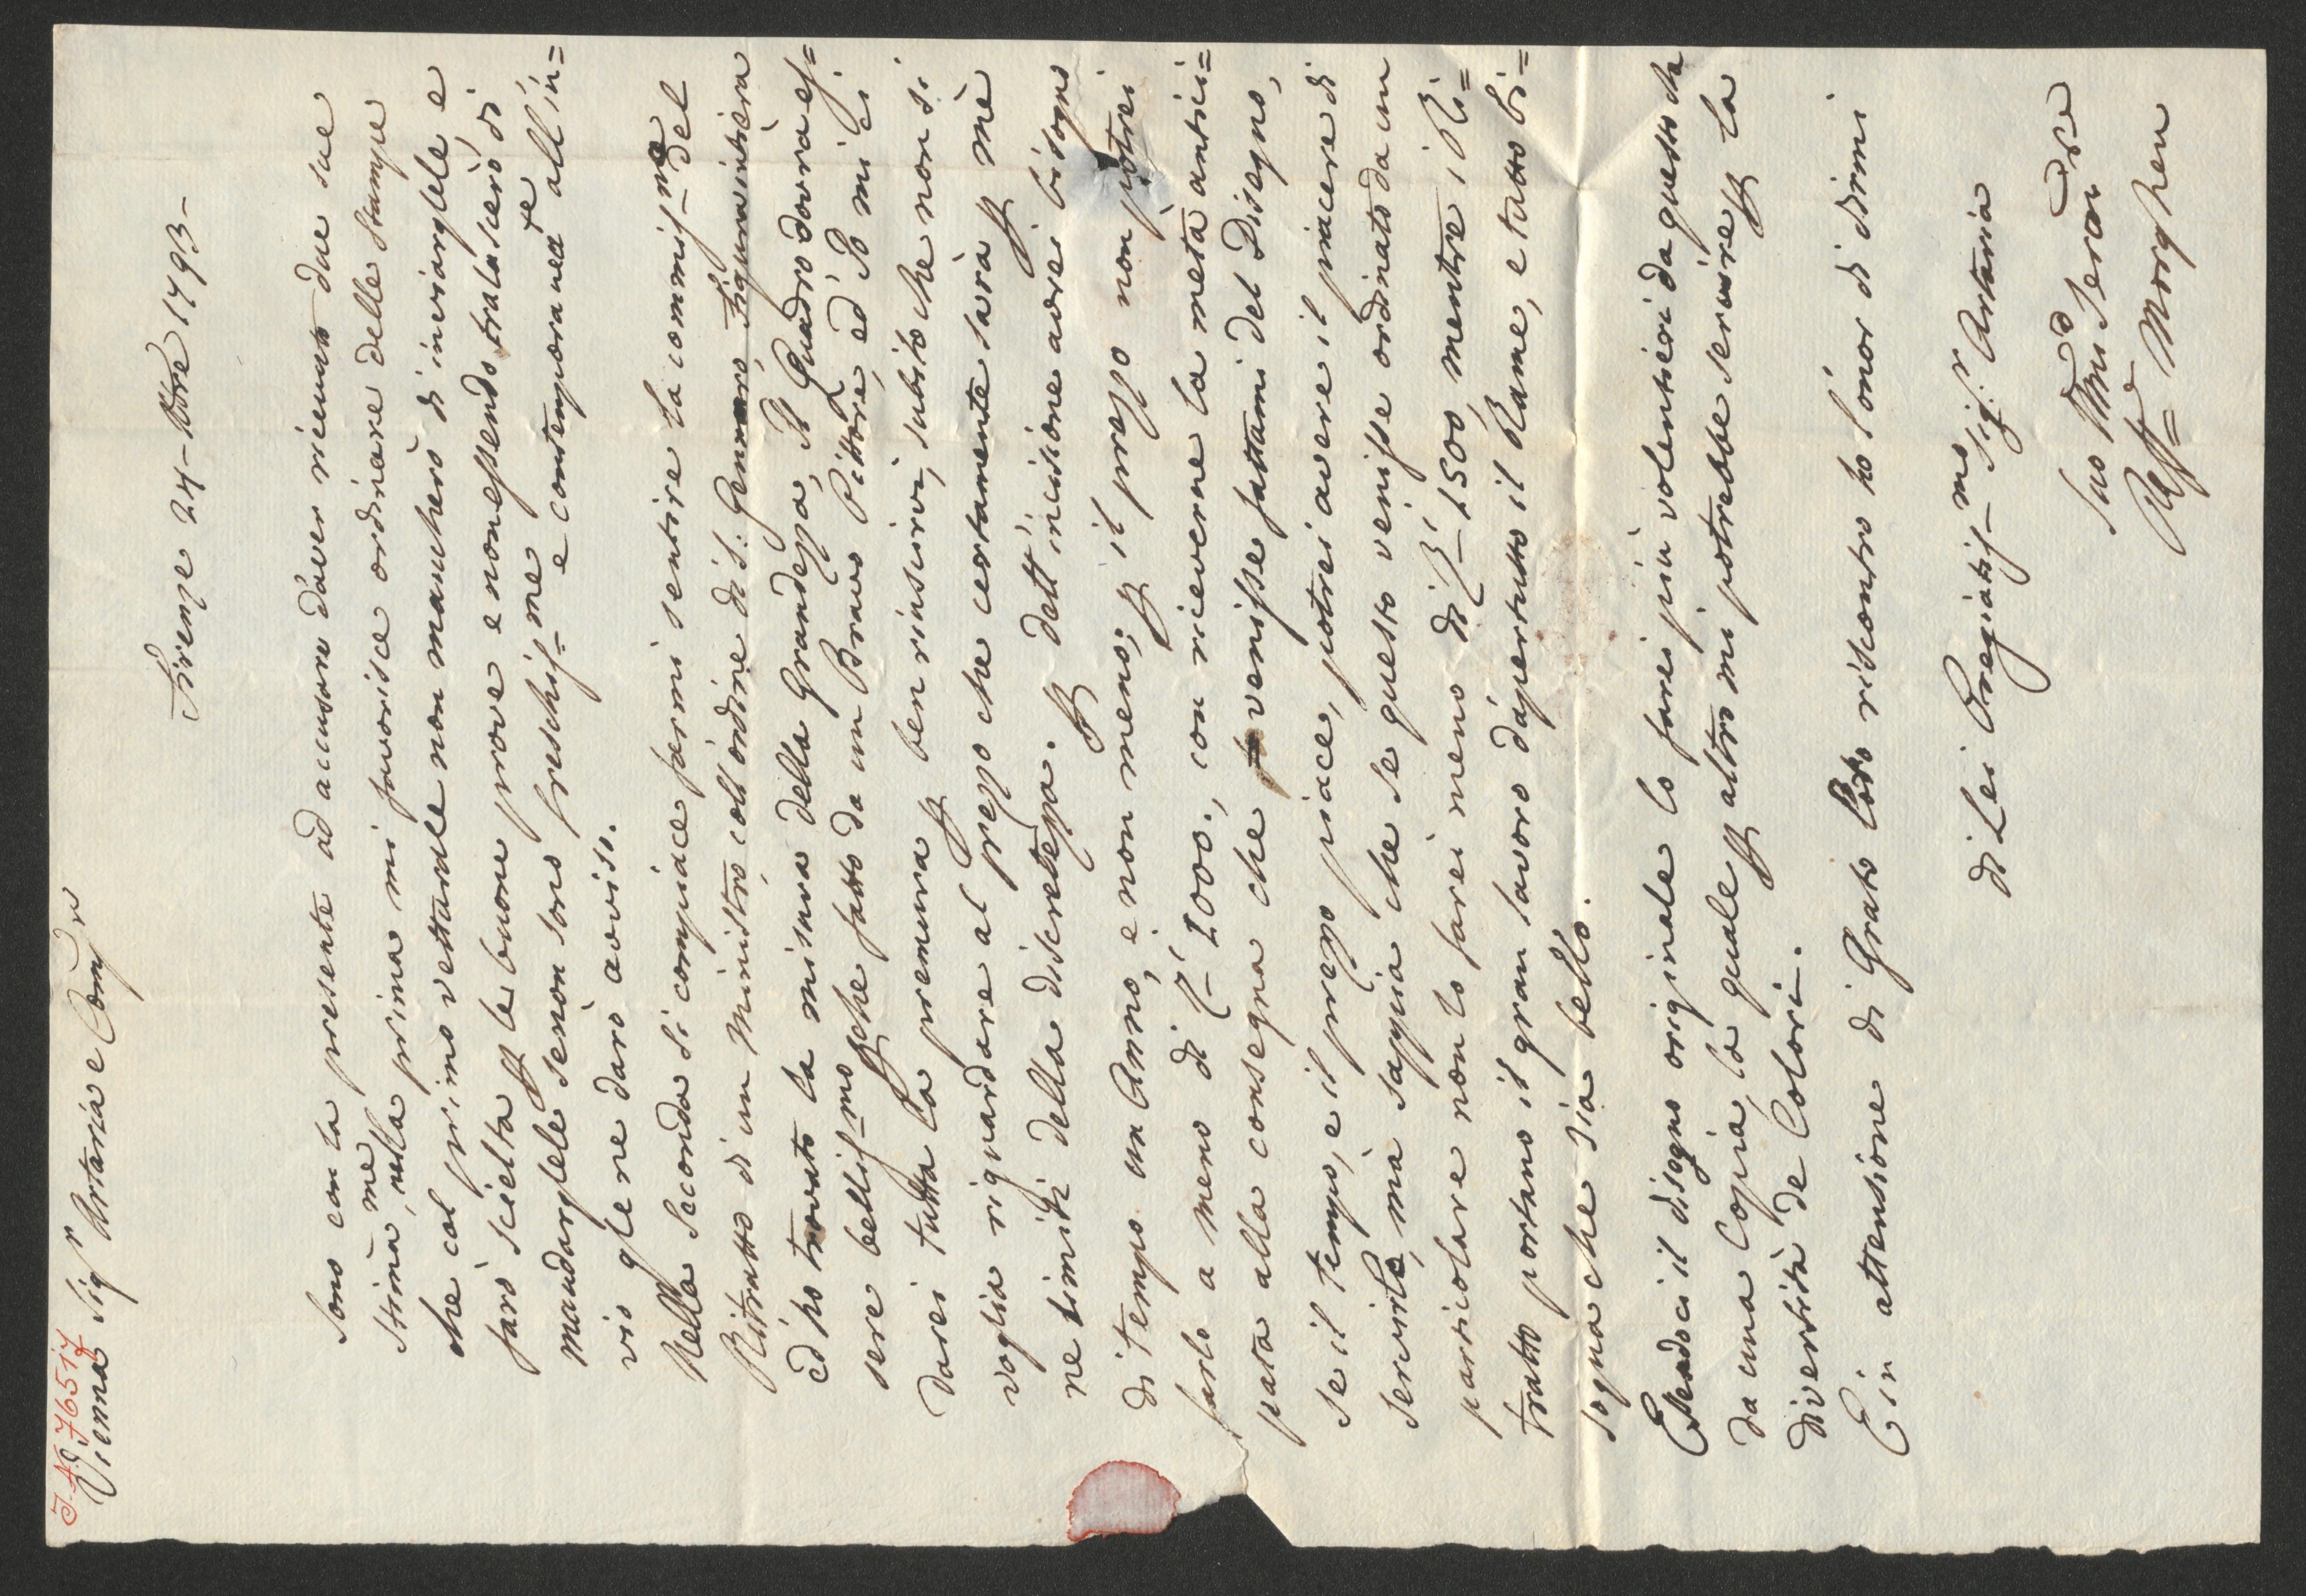 I.N. 76517
Vienna Sig.r Artaria e Comp.
Firenze 24 - Xbre 1793 -
Sono con la presente ad accusare d'aver ricevuto due sue
stima.me, nella prima mi favorisce ordinare delle stampe
che col primo vetturale non mancherò di inviargele, e
farò scielta p le buone prove e non essendo tralascierò di
mandargele senon sono freschis=me e contemporanea.te all'in=
vio gle ne darò avviso.
Nella Seconda Si compiace farmi sentire la commis=ne del
Ritratto d'un Ministro, coll'ordine di S: Gennaro, Figura intiera
ed ho trovato la misura della Grandezza, il Quadro dovrà es=
sere bellis=mo p che fatto da un Bravo Pittore, ed Io mi ci
darei tutta la premura p ben riuscirvi, subito che non si
voglia riguardare al prezzo che certamente sarà p mè
ne limiti della discretezza. p dell'incisione avrei bisogno
di tempo un Anno, e non meno; p il prezzo non potrei
farlo a meno di Z.i 2000., con riceverne la metà antici=
pata alla consegna che venisse fattami del Disegno,
se il tempo, e il prezzo piace, potrei avere il piacere di
servirla, mà sappia che se questo venisse ordinato da un
particolare non lo farei meno di Z.i 2500, mentre i Ri=
tratti portano il gran lavoro dapertutto il Rame, e tutto bi=
sogna che sia bello.
Essendoci il disegno originale lo farei più volentieri da questo che
da una Copia, la quale p altro mi potrebbe servire p la
diversità de Colori.
E in attensione di Grato riscontro ho l'onor di dirmi
di Lei Pregiatis=mo Sig.r Artaria
Suo Um.o Servi.dore
Raff.e Morghen